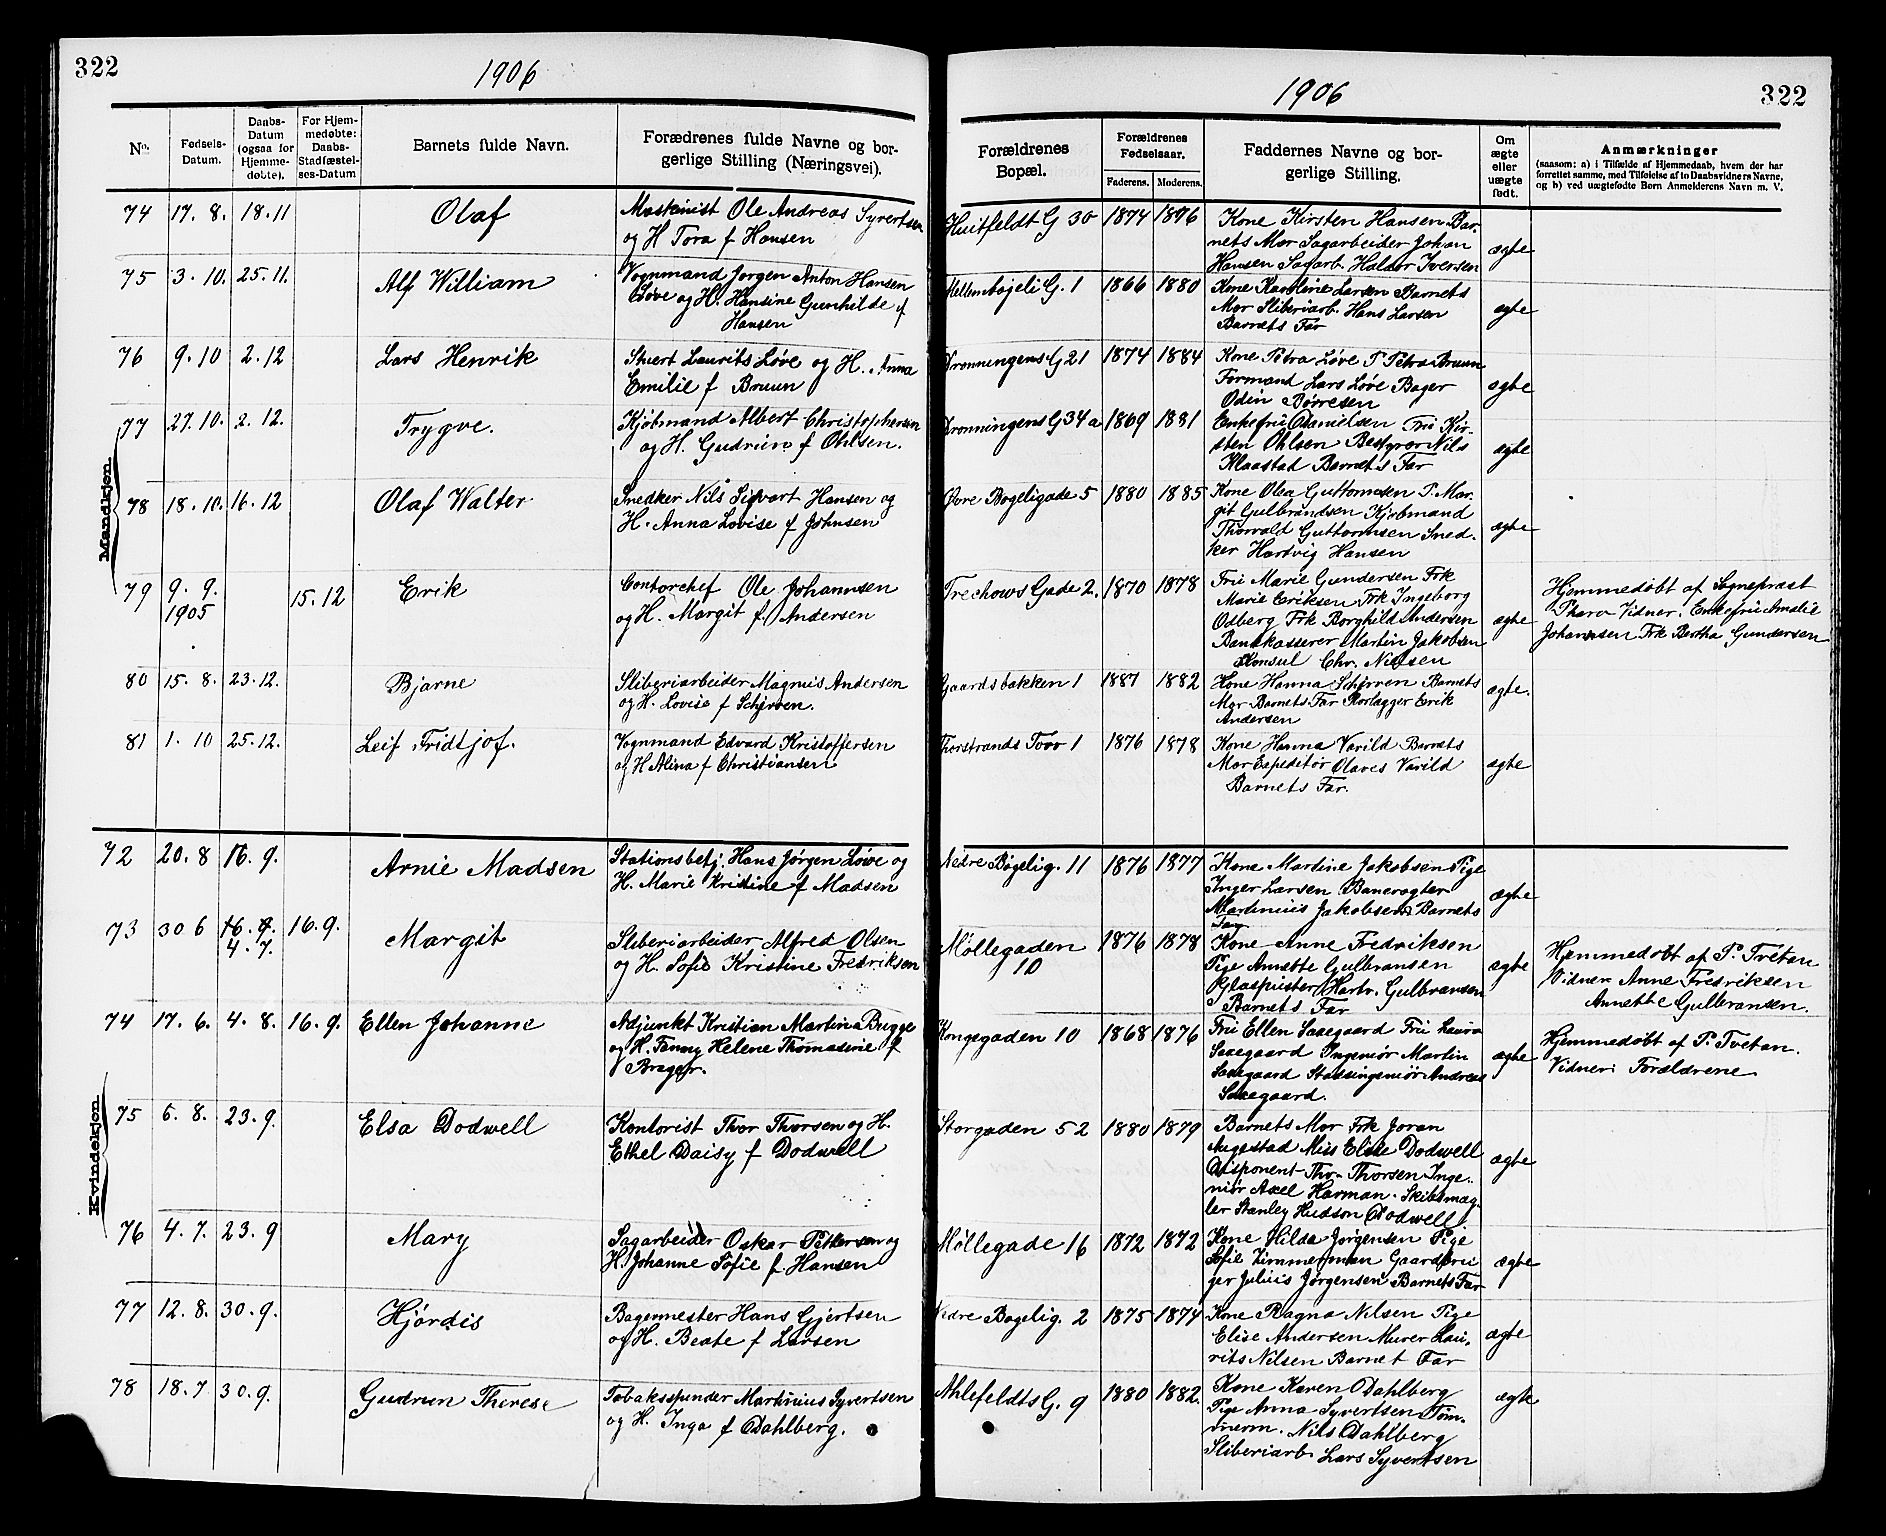 322
1906
No.
Fødsels-
Datum.
Daabs-
Datum
(ogsaa for
Hjemme-
døbte).
For Hjem-
medøbte:
Daabs-
Stadfæstel-
ses-Datum
Barnets fulde Navn.
Forædrenes fulde Navne og bor-
gerlige Stilling (Næringsvei).
Mandkjøn.
74 17. 8. 18.11 Olaf
Maskinist Ole Andreas Syvertsen
og H Tora f Hansen
75 3. 10. 25.11. Alf William
Vognmand Jørgen Anton Hansen
Løve og H. Hansine Gunhilde f
Hansen
76 9. 10 2. 12 Lars Henrik
Stuert Laurits Løve og H. Anna
Emilie f Bruun
77 27. 10. 2. 12. Trygve.
Kjøbmand Albert Christophersen
og H. Gudrun f Ohlsen.
78 18. 10. 16. 12 Olaf Walter
Snedker Nils Sigvart Hansen og
H. Anna Lovise f Johnsen
79 9. 9.
1905
15. 12 Erik
Contorchef Ole Johannsen
og H. Margit f. Andersen
80 15. 8. 23.12. Bjarne
Sliberiarbeider Magnus Andersen
og H. Lovise f Schjerven.
81 1. 10 25.12. Leif Fridtjof.
Vognmand Edvard Kristoffersen
og H Alina f Christiansen
Kvindekjøn.
72 20. 8 16. 9. Arnie Madsen
Stationsbetj. Hans Jørgen Løve og
H. Marie Kristine f Madsen
73 30 6 16. 9. 16. 9. Margit
4. 7.
Sliberiarbeider Alfred Olsen
og H. Sofie Kristine Fredriksen
74 17. 6. 4. 8. 16. 9. Ellen Johanne
Adjunkt Kristian Martin Bugge
og H. Fanny Helene Thomasine f
Brager.
75 6. 8. 23. 9. Elsa Dodwell
Kontorist Thor Thorsen og H.
Ethel Daisy f Dodwell
76 4. 7. 23. 9 Mary
Sagarbeider Oskar Pettersen og
H. Johanne Sofie f Hansen
77 12. 8. 30. 9. Hjørdis
Bagermester Hans Gjertsen
og H. Beate f Larsen
78 18. 7 30. 9. Gudrun Therese
Tobaksspinder Martinius Syvertsen
og H. Inga f Dahlberg.
1906
322
Forældrenes
Bopæl.
Forældrenes
Fødselsaar.
Faderens. Moderens.
Faddernes Navne og bor-
gerlige Stilling.
Om
ægte
eller
uægte
født.
Anmærkninger
(saasom: a) i Tilfælde af Hjemmedaab, hvem der har
forrettet samme, med Tilføielse af to Daabsvidners Navne,
og b) ved uægtefødte Børn Anmelderens Navn m. V.
Huitfeldt G 30 1874 1876
Kone Kirsten Hansen Bar-
nets Mor Sagarbeider Johan
Hansen Sagarb. Haldor Iversen
ægte
Mellembøjeli G. 1 1866 1880
Kone Karoline Larsen Barnets
Mor Sliberiarb. Hans Larsen
Barnets Far
ægte
Dronningens G 21 1874 1884
Kone Petra Løve P. Petra Bruun
Formand Lars Løve Bager
Odin Børresen
ægte
Dronningens G 34 a 1869 1881
Enkefru Danielsen Fru Kir-
sten Ohlsen Bestyrer Nils
Klaastad Barnets Far
ægte
Øvre Bøgeligade 5 1880 1885
Kone Olea Guttormsen P. Mar-
git Gulbrandsen Kjøbmand
Thorvald Guttormsen Sned-
ker Hartvig Hansen
ægte
Treschows Gade 2. 1870 1878
Fru Marie Gundersen Frk
Marie Eriksen Frk Ingeborg
Odberg Frk Borghild Andersen
Bankkasserer Martin Jakobsen
Konsul Chr. Nielsen
ægte
Hjemmedøbt af Sogneprest
Vidner: Enkefru Amalie
Johannsen Frk Bertha Gundersen
Gaardsbakken 1 1881 1882
Kone Hanna Schjerven Barnets
Mor Barnets Far Rørlægger Erik
Andersen
ægte.
Thorstrands Torv 1 1876 1878
Kone Hanna Varild Barnets
Mor Expeditør Olaves Varild
Barnets Far.
ægte
Nedre Bøgelig. 11 1876 1877
Kone Martine Jakobsen Pige
Inger Larsen Banevogter
Martinius Jakobsen Barnets
Far
ægte
Møllegaden
10
1876 1878
Kone Anne Fredriksen
Pige Annette Gulbransen
Glaspuster Hartv. Gulbransen
Barnets Far
ægte
Hjemmedøbt af P. Tvetan
Vidner Anne Fredriksen
Annette Gulbransen.
Kongegaden 10 1868 1876
Fru Ellen Saxegaard Fru Laura
Saxegaard Ingeniør Martin
Saxegaard Stadsingeniør Andreas
Saxegaard.
ægte
Hjemmedøbt af P. Tvetan.
Vidner: Forældrene
Storgaden 52 1880 1879
Barnets Mor Frk Joran
Augestad Miss Elsie Dodwell
Disponent Thv. Thorsen Inge-
niør Axel Harman. Skibsmæg-
ler Stanley Hudson Dodwell.
ægte
Møllegade 16 1872 1872
Kone Hilda Jørgensen Pige
Sofie Zimmerman Gaardbru-
ger Julius Jørgensen Barnets Far
ægte
Nedre Bøgelig. 2 1875 1874
Kone Ragna Nilsen Pige
Elise Andersen Murer Lau-
rits Nilsen Barnet Far
ægte
Ahlefeldts G. 9 1880 1882.
Kone Karen Dahlberg
Pige Anna Syvertsen Tøm-
merm. Nils Dahlberg
Sliberiarb. Lars Syvertsen
ægte